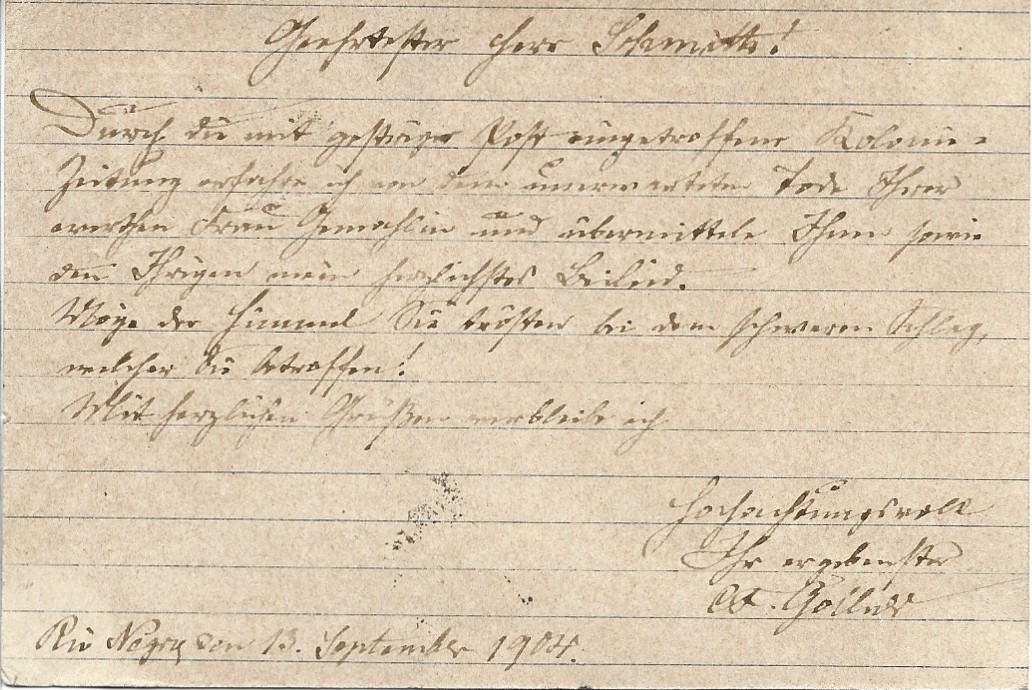 Geehrtester Herr Schmitt!
Durch die mit gestriger Post eingetroffene Kolonie-
Zeitung erfahre ich von dem unerwarteten Tode Ihrer
werthen Frau Gemahlin und übermittele Ihnen sowie
den Ihrigen mein herzlichstes Beileid.
Möge der Himmel Sie trösten bei dem schweren Schlag,
welcher Sie betroffen!
Mit herzlichen Grüßen verbleibe ich
Hochachtungsvoll
Ihr ergebenster
Rio Negro den 13. September 1904.